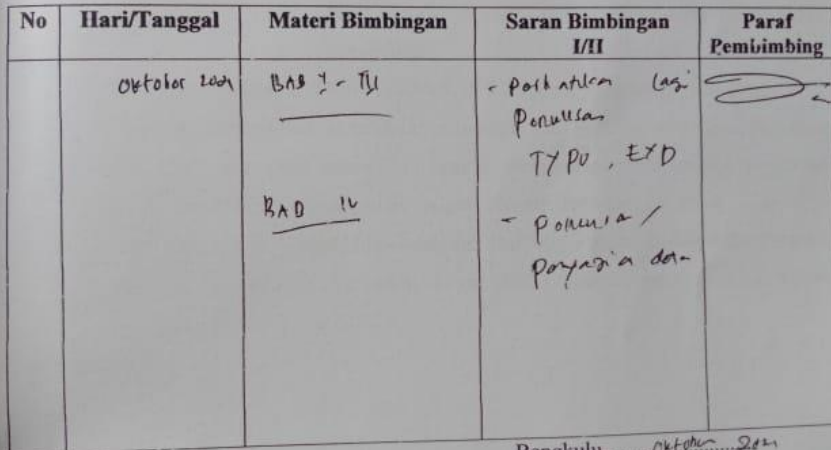 No Hari/Tanggal Materi Bimbingan Saran Bimbingan I/II Paraf Pembimbing
Oktober BAB I - III - Perhatikan lagi
Penulisan
TYPO, EYD
BAB IV - Penulisan /
Penyajian data
Bengkulu, Oktober